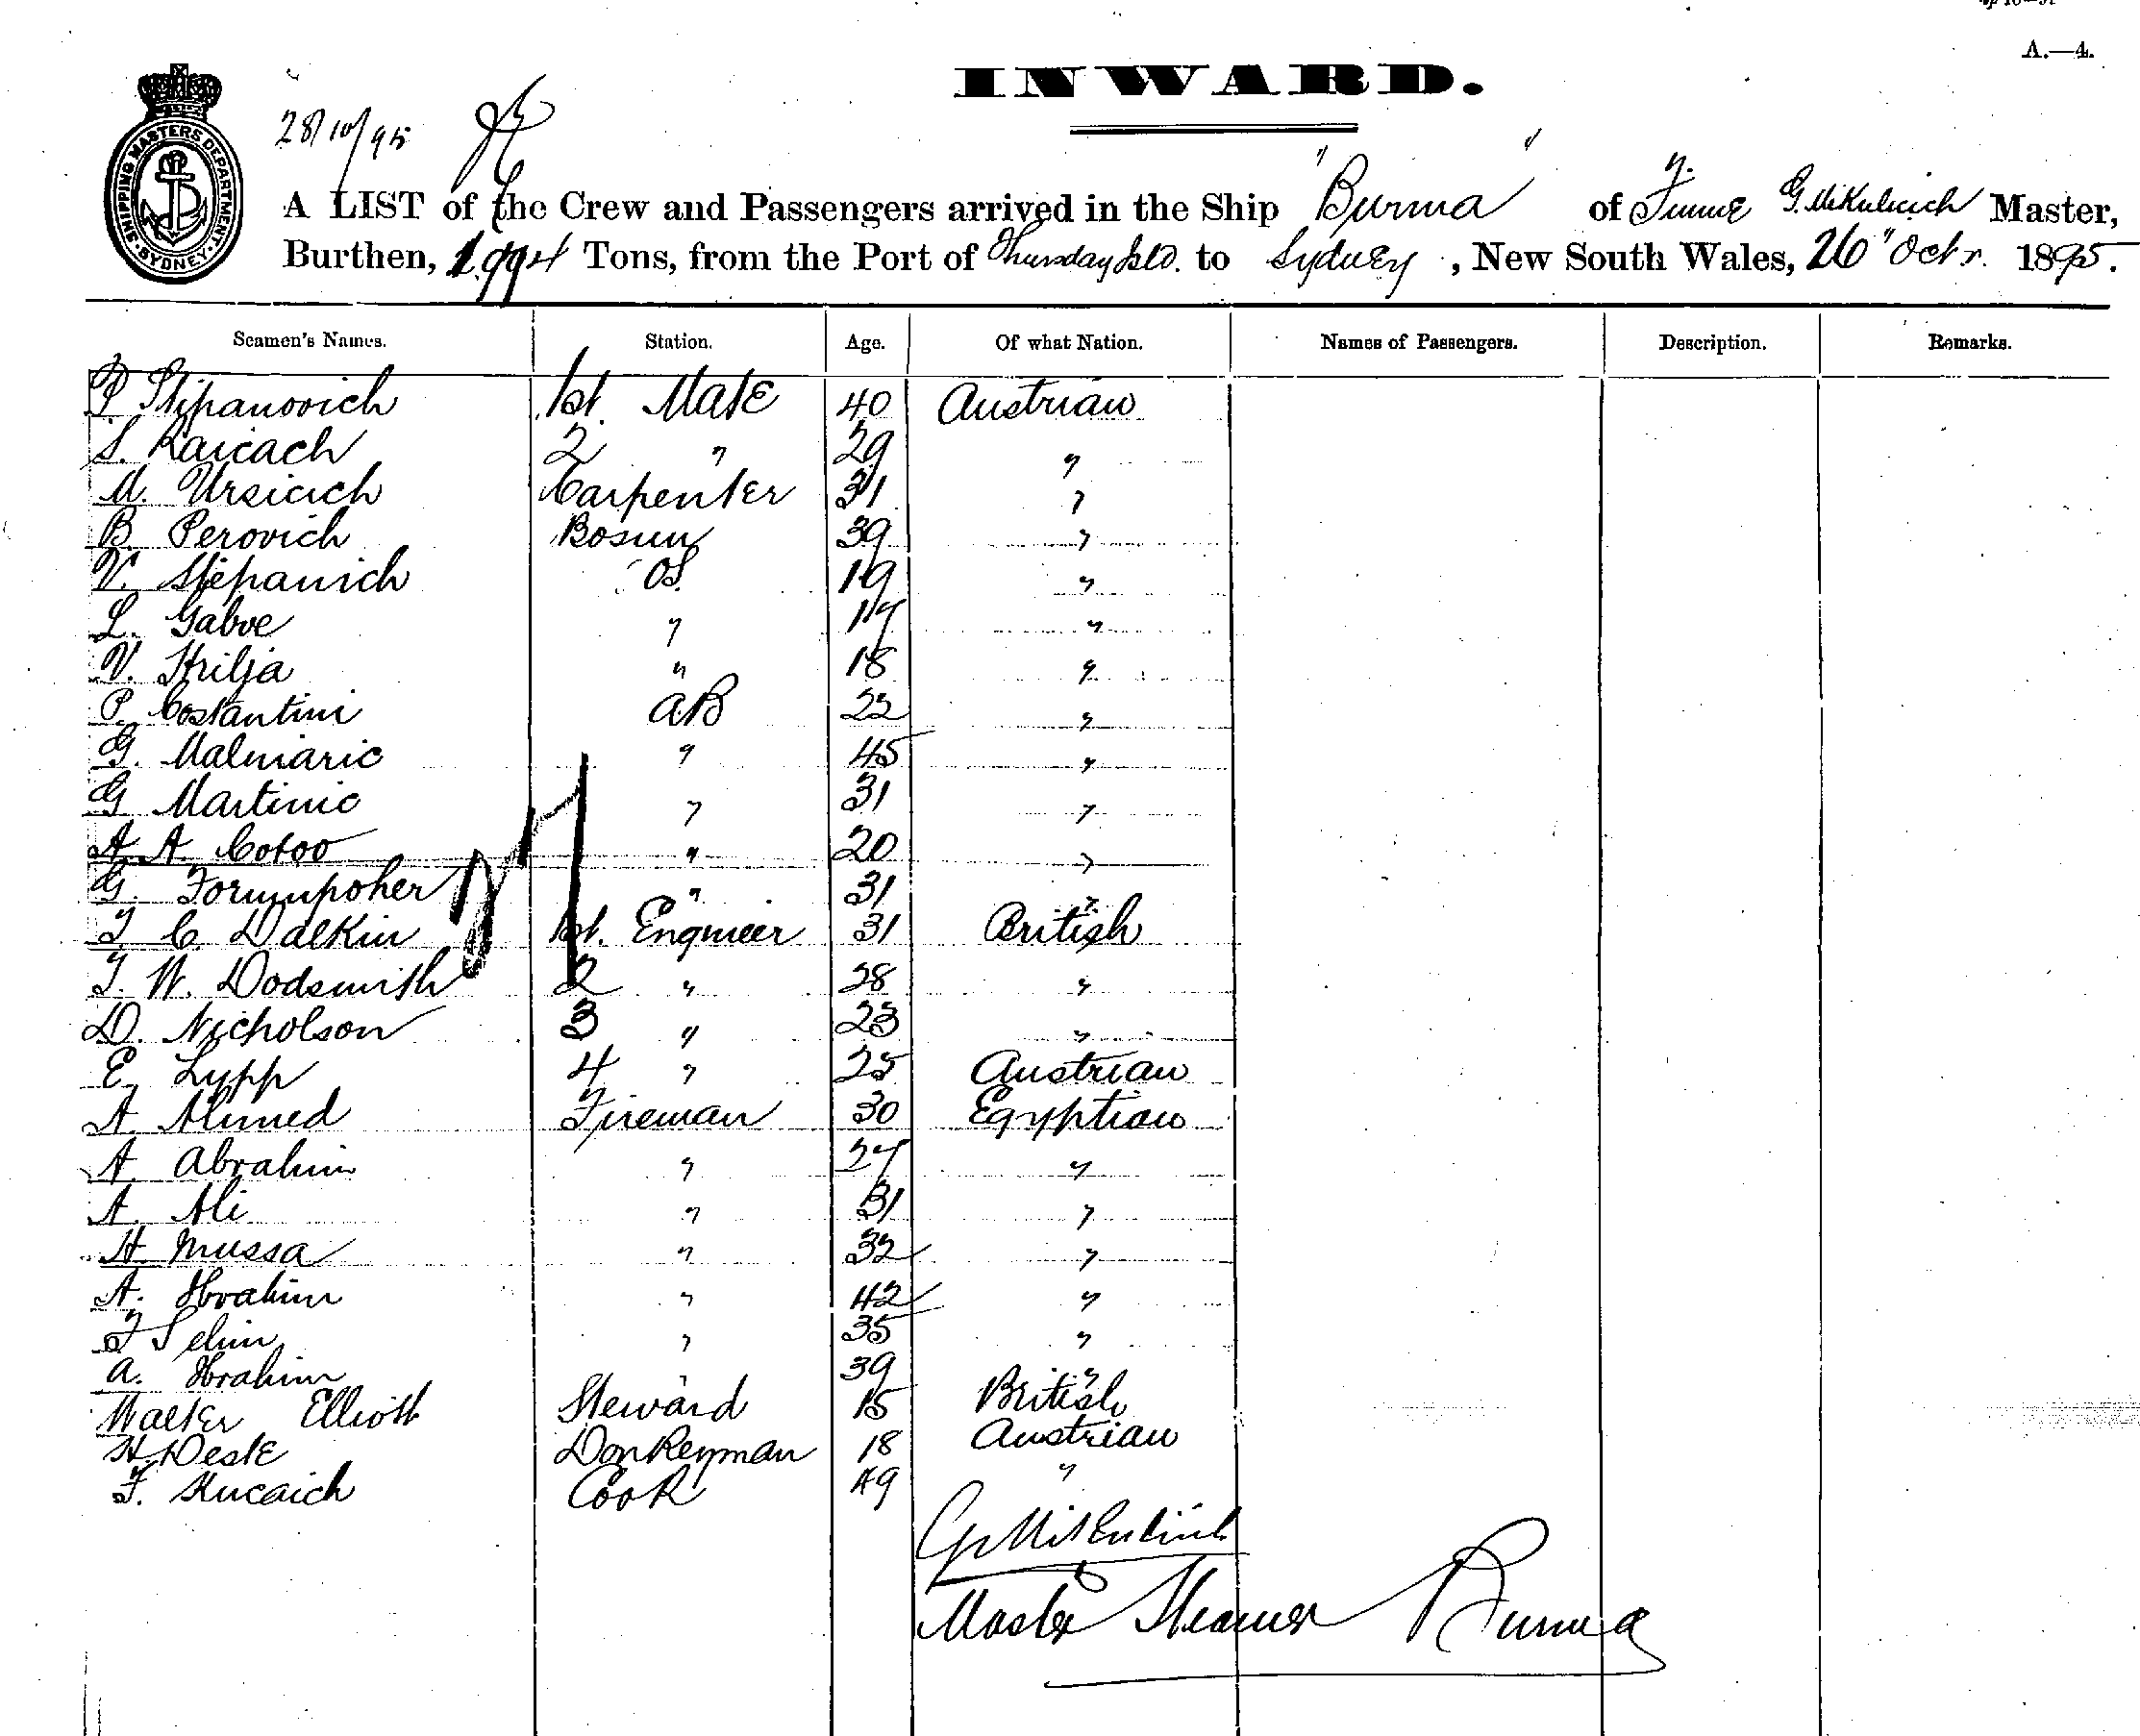 A.—4.
INWARD.
28/10/95
SHIPPING MASTERS DEPARTMENT SYDNEY
A LIST of the Crew and Passengers arrived in the Ship "Burma" of Fiume G. Mikulicich Master,
Burthen, 1,994 Tons, from the Port of Thursday Isld. to Sydney, New South Wales, 26" Octr. 1895.
Seamen's Names. Station. Age. Of what Nation. Names of Passengers. Description. Remarks.
P Stipanovich 1st. Mate 40 Austrian
S. Raicach 2 " 29 "
M. Ursicich Carpenter 31 "
B. Perovich Bosun 39 "
V. Stepanich OS. 19 "
L. Gaboe " 17 "
V. Strilja " 18 "
P. Costantini AB 22 "
G. Malniaric " 45 "
G Martinic " 31 "
A A. Cotoo " 20 "
G. Formmpoher " 31 "
T C. Dalkin 1st. Engineer 31 British
T. W. Dodsmith 2 " 28 "
D. Nicholson 3 " 23 "
E. Lypp 4 " 25 Austrian
A. Ahmed Fireman 30 Egyptian
A. Abrahim " 27 "
A. Ali " 31 "
H Mussa " 32 "
A. Ibrahim " 42 "
T Selim " 35 "
A. Ibrahim " 39 "
Walter Elliott Steward 15 British
H. Deste Donkeyman 18 Austrian
F. Kucaich Cook 49 "
G. Mikulicich
Master Steamer Burma